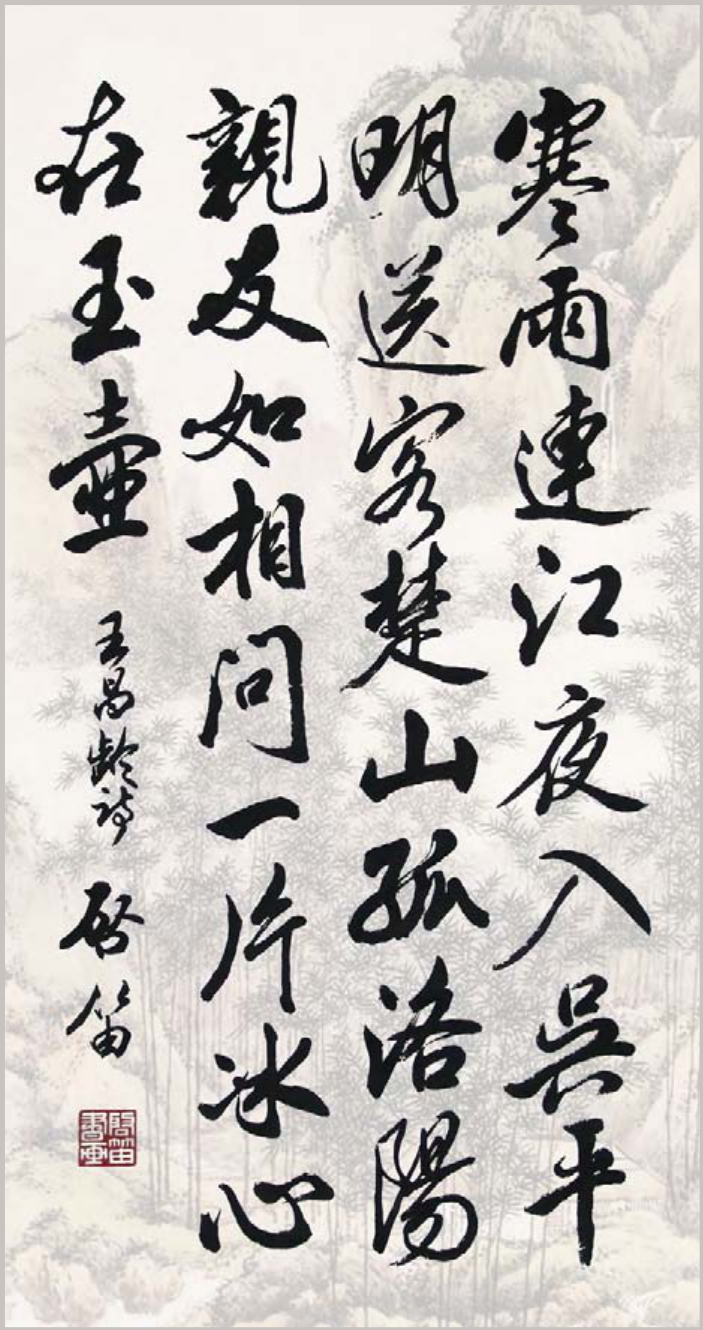 寒雨連江夜入吳平
明送客楚山孤洛陽
親友如相問一片冰心
在玉壺 王昌齡詩 啓笛
啓笛書畫